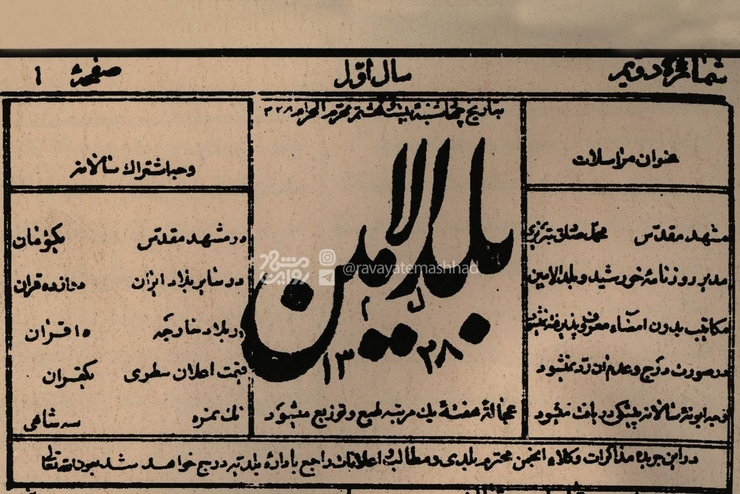 شماره دویم
سال اول
صفحهٔ ۱
بتاریخ پنجشنبهٔ بیست هشتم محرم الحرام ۱۳۲۸
عنوان مراسلات
مشهد مقدس محمد صادق تبریزی
مدیر روزنامهٔ خورشید و بلدالامین
مکاتیب بدون امضاء معروف پذیرفته نمیشود
در صورت درج و عدم آن رد نمیشود
بلدالامین
۱۳۲۸
@ravayatemashhad
روایت مشهد
عجالة هفتهٔ یک مرتبه طبع و توزیع میشود
وجه اشتراک سالانه
در مشهد مقدس یکتومان
در سایر بلاد ایران دوازده قران
در بلاد خارجه ۱۵ قران
قیمت اعلان سطری یکقران
تک نمره سه شاهی
در این جریده مذاکرات وکلاء انجمن محترم بلدی و مطالب و اعلانات راجع باداره بلدیه درج خواهد شد بعون الله تعالی